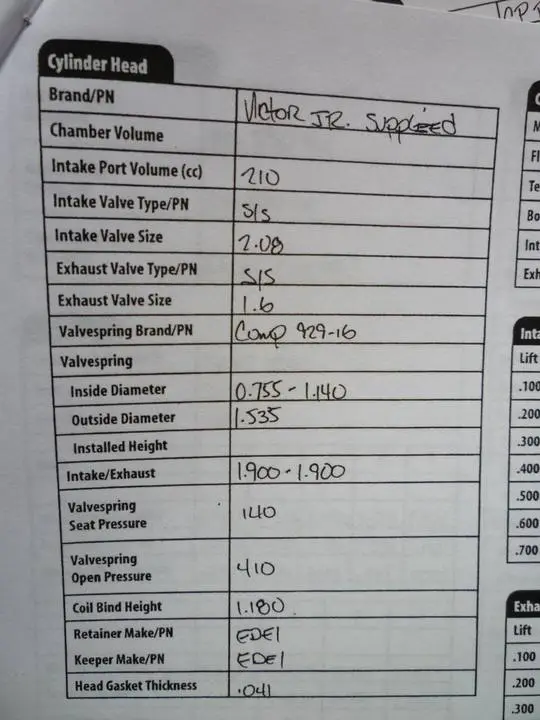 Cylinder Head
Brand/PN VICTOR JR. SUPPLIED
Chamber Volume
Intake Port Volume (cc) 210
Intake Valve Type/PN S/S
Intake Valve Size 2.08
Exhaust Valve Type/PN S/S
Exhaust Valve Size 1.6
Valvespring Brand/PN Comp 929-16
Valvespring
Inside Diameter 0.755 - 1.140
Outside Diameter 1.535
Installed Height
Intake/Exhaust 1.900 - 1.900
Valvespring
Seat Pressure 140
Valvespring
Open Pressure 410
Coil Bind Height 1.180
Retainer Make/PN EDEL
Keeper Make/PN EDEL
Head Gasket Thickness .041
Te
Bo
Int
Exh
Inta
Lift
.100
.200
.300
.400
.500
.600
.700
Exha
Lift
.100
.200
.300